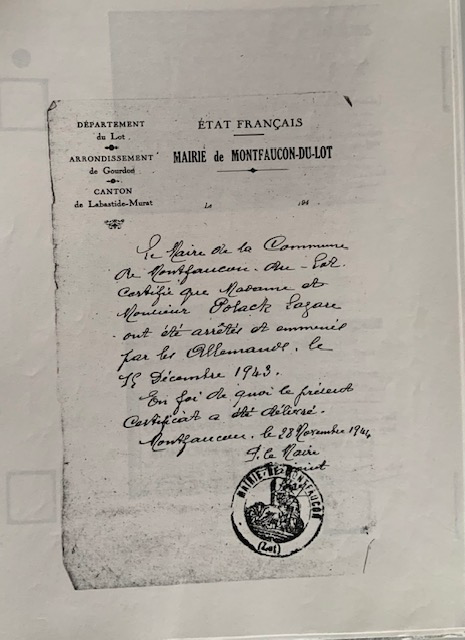 DÉPARTEMENT
du Lot
ARRONDISSEMENT
de Gourdon
CANTON
de Labastide-Murat
ÉTAT FRANÇAIS
MAIRIE de MONTFAUCON-DU-LOT
Le 194
Le Maire de la Commune
de Montfaucon-du-Lot
certifie que Madame et
Monsieur Polack Lazare
ont été arrêtés et emmenés
par les Allemands, le
15 Décembre 1943.
En foi de quoi le présent
certificat a été délivré.
Montfaucon, le 28 Novembre 1944
P. le Maire
MAIRIE DE MONTFAUCON
(Lot)